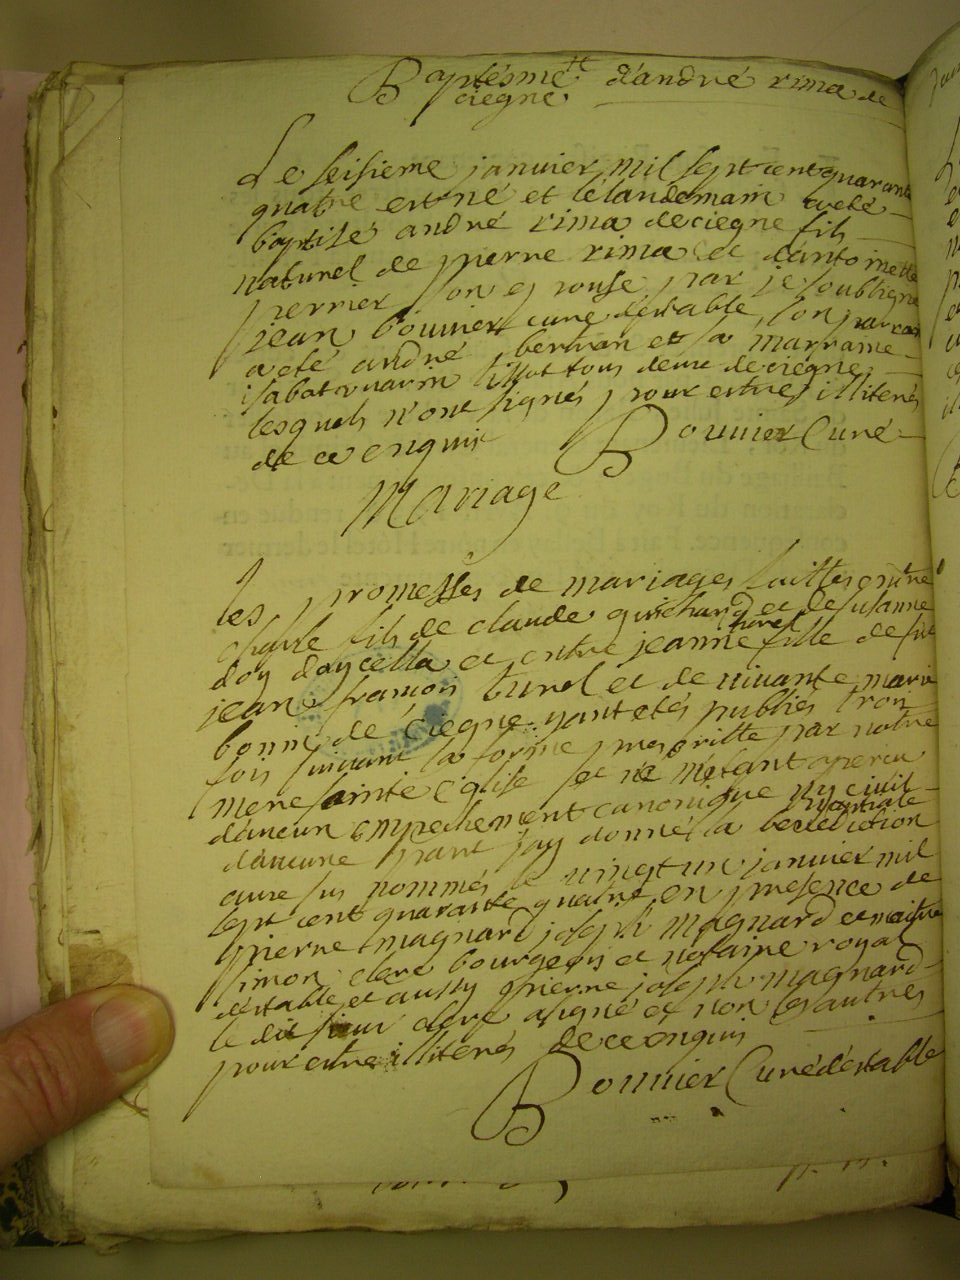 Baptésme d'andré rima de
ciegne
Le seisieme janvier mil sept cent quarante
quatre est né et le landemain a eté
baptisé andré rima de ciegne fils
naturel de pierre rima et d'antoinette
perrier son epouse par je soubsigné
jean bouvier curé d'estable, son parrain
a eté andré berman et sa marraine
isabot tous deux de ciegne
lesquels n'ont signés pour estres illiterés
de ce enquis Bouvier Curé
Mariage
les promesses de mariages faittes entre
fils de claude guichard et de susanne
doy d'aycella et entre jeanne turel fille de feu
jean françois turel et de vivante marie
bonne de ciegne, yant etés publiés trois
fois suivant la forme prescritte par notre
mere sainte Eglise et ne m'etant aperçu
d'aucun empechement canonique ny civil
d'aucune part j'ay donné la benediction nuptiale
aux sus nommés le vingt un janvier mil
sept cent quarante quatre en presence de
pierre magnard joseph magnard et maitre
simon clerc bourgeois et notaire royal
d'estable et aussy pierre joseph magnard
le dit sieur clerc a signé et non les autres
pour estre illiterés de ce enquis
Bouvier Curé d'estable